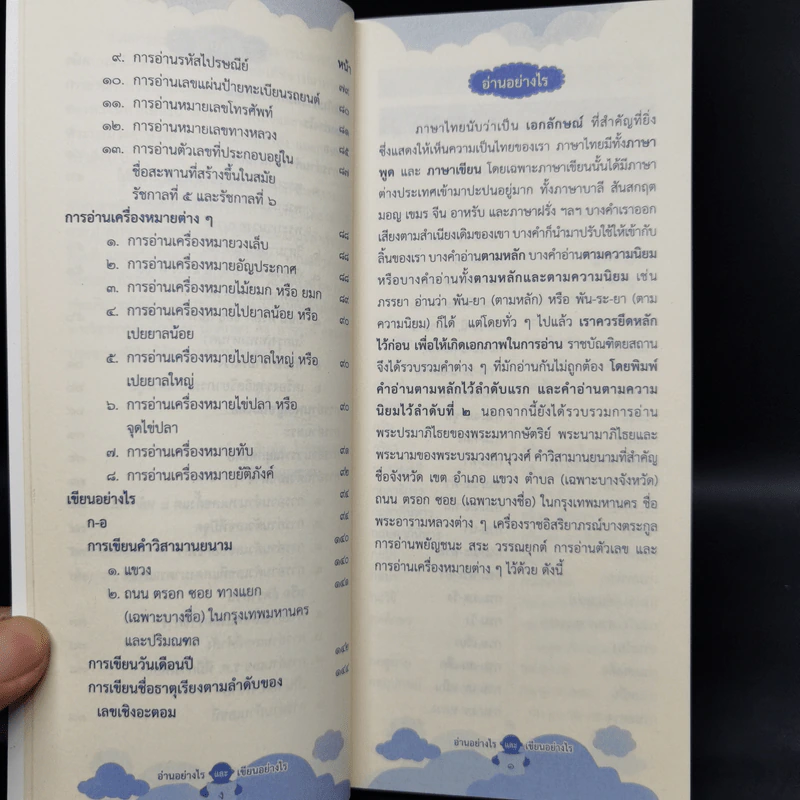 หน้า
๙. การอ่านรหัสไปรษณีย์ ๗๙
๑๐. การอ่านเลขแผ่นป้ายทะเบียนรถยนต์ ๘๐
๑๑. การอ่านหมายเลขโทรศัพท์ ๘๑
๑๒. การอ่านหมายเลขทางหลวง ๘๕
๑๓. การอ่านตัวเลขที่ประกอบอยู่ใน ๘๗
ชื่อสะพานที่สร้างขึ้นในสมัย
รัชกาลที่ ๕ และรัชกาลที่ ๖
การอ่านเครื่องหมายต่าง ๆ ๘๘
๑. การอ่านเครื่องหมายวงเล็บ ๘๘
๒. การอ่านเครื่องหมายอัญประกาศ ๘๘
๓. การอ่านเครื่องหมายไม้ยมก หรือ ยมก ๘๙
๔. การอ่านเครื่องหมายไปยาลน้อย หรือ ๙๐
เปยยาลน้อย
๕. การอ่านเครื่องหมายไปยาลใหญ่ หรือ ๙๐
เปยยาลใหญ่
๖. การอ่านเครื่องหมายไข่ปลา หรือ ๙๐
จุดไข่ปลา
๗. การอ่านเครื่องหมายทับ ๙๑
๘. การอ่านเครื่องหมายยัติภังค์ ๙๒
เขียนอย่างไร ๙๔
ก-อ ๙๔
การเขียนคำวิสามานยนาม ๑๔๐
๑. แขวง ๑๔๐
๒. ถนน ตรอก ซอย ทางแยก ๑๔๑
(เฉพาะบางชื่อ) ในกรุงเทพมหานคร
และปริมณฑล
การเขียนวันเดือนปี ๑๔๒
การเขียนชื่อธาตุเรียงตามลำดับของ ๑๔๔
เลขเชิงอะตอม
อ่านอย่างไร และ เขียนอย่างไร
อ่านอย่างไร
ภาษาไทยนับว่าเป็น เอกลักษณ์ ที่สำคัญที่ยิ่ง
ซึ่งแสดงให้เห็นความเป็นไทยของเรา ภาษาไทยมีทั้งภาษา
พูด และ ภาษาเขียน โดยเฉพาะภาษาเขียนนั้นได้มีภาษา
ต่างประเทศเข้ามาปะปนอยู่มาก ทั้งภาษาบาลี สันสกฤต
มอญ เขมร จีน อาหรับ และภาษาฝรั่ง ฯลฯ บางคำเราออก
เสียงตามสำเนียงเดิมของเขา บางคำก็นำมาปรับใช้ให้เข้ากับ
ลิ้นของเรา บางคำอ่านตามหลัก บางคำอ่านตามความนิยม
หรือบางคำอ่านทั้งตามหลักและตามความนิยม เช่น
ภรรยา อ่านว่า พัน-ยา (ตามหลัก) หรือ พัน-ระ-ยา (ตาม
ความนิยม) ก็ได้ แต่โดยทั่ว ๆ ไปแล้ว เราควรยึดหลัก
ไว้ก่อน เพื่อให้เกิดเอกภาพในการอ่าน ราชบัณฑิตยสถาน
จึงได้รวบรวมคำต่าง ๆ ที่มักอ่านกันไม่ถูกต้อง โดยพิมพ์
คำอ่านตามหลักไว้ลำดับแรก และคำอ่านตามความ
นิยมไว้ลำดับที่ ๒ นอกจากนี้ยังได้รวบรวมการอ่าน
พระปรมาภิไธยของพระมหากษัตริย์ พระนามาภิไธยและ
พระนามของพระบรมวงศานุวงศ์ คำวิสามานยนามที่สำคัญ
ชื่อจังหวัด เขต อำเภอ แขวง ตำบล (เฉพาะบางจังหวัด)
ถนน ตรอก ซอย (เฉพาะบางชื่อ) ในกรุงเทพมหานคร ชื่อ
พระอารามหลวงต่าง ๆ เครื่องราชอิสริยาภรณ์บางตระกูล
การอ่านพยัญชนะ สระ วรรณยุกต์ การอ่านตัวเลข และ
การอ่านเครื่องหมายต่าง ๆ ไว้ด้วย ดังนี้
อ่านอย่างไร และ เขียนอย่างไร
๑